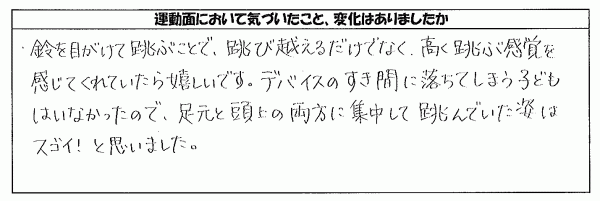 運動面において気づいたこと、変化はありましたか
・鈴を目がけて跳ぶことで、跳び越えるだけでなく、高く跳ぶ感覚を
感じてくれていたら嬉しいです。デバイスのすき間に落ちてしまう子ども
はいなかったので、足元と頭上の両方に集中して跳んでいた姿は
スゴイ！と思いました。